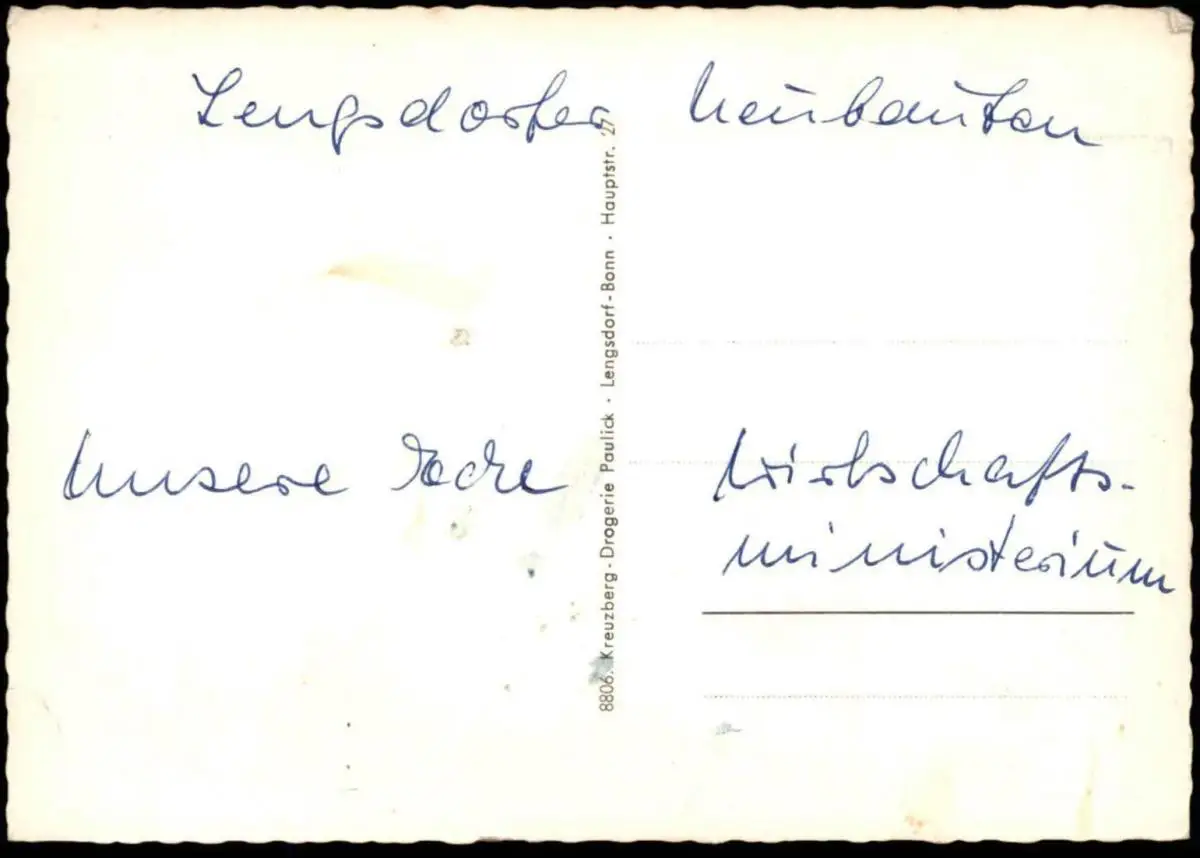 Lengsdorfer Neubauten
Unsere Ecke
Wirtschafts-
ministerium
8806. Kreuzberg-Drogerie Paulick · Lengsdorf-Bonn · Hauptstr. 27